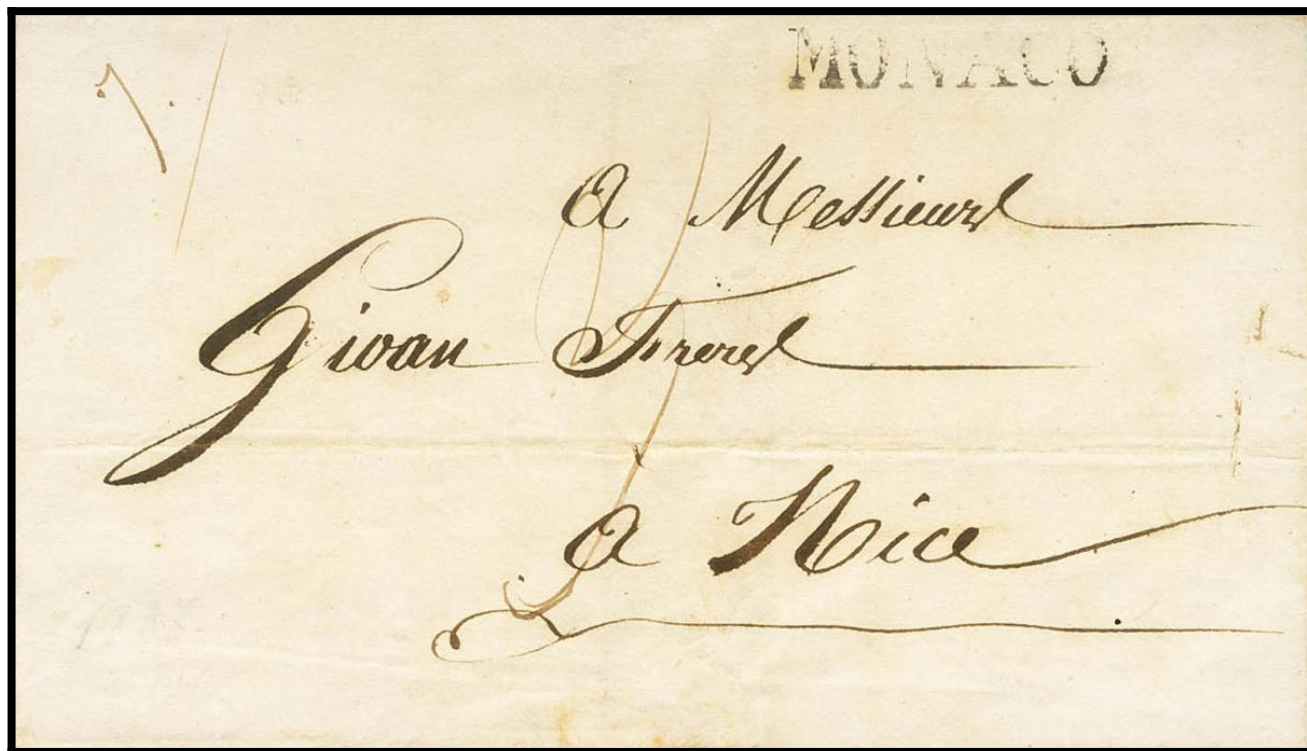 MONACO
a Messieurs
Givan Freres
a Nice